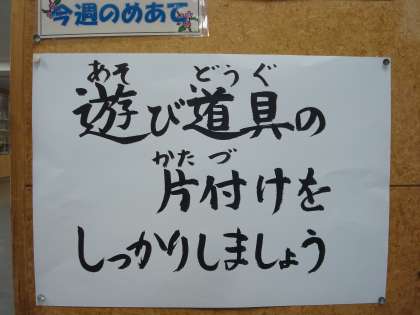 今週のめあて
あそ どうぐ
遊び道具の
かたづ
片付けを
しっかりしましょう